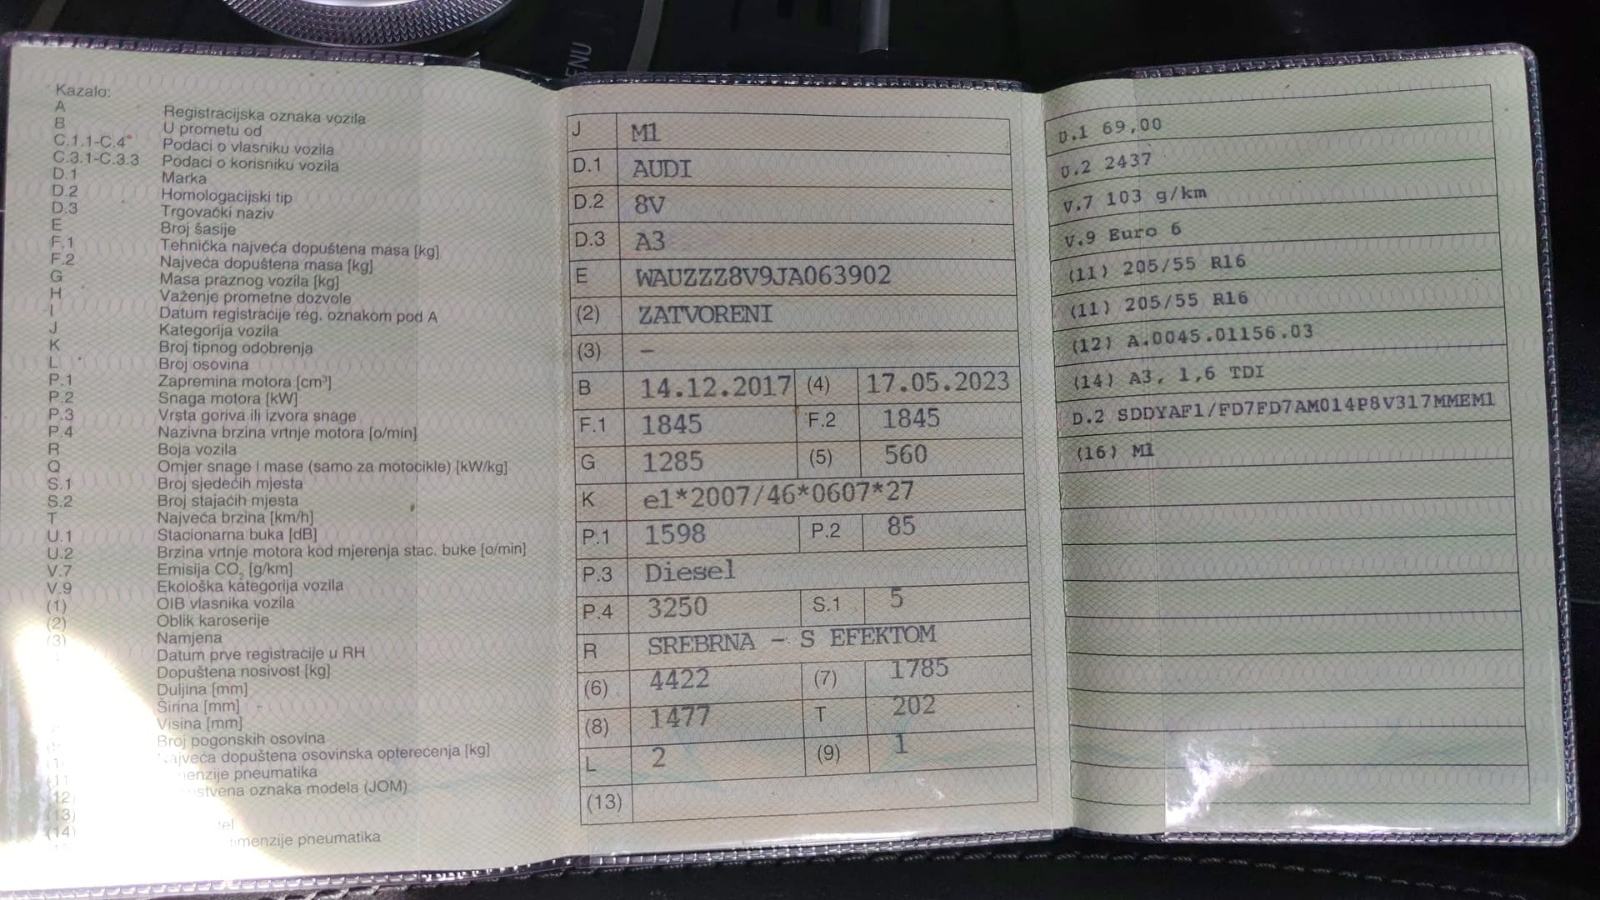 ENU
Kazalo:
A Registracijska oznaka vozila
B U prometu od
C.1.1-C.4 Podaci o vlasniku vozila
C.3.1-C.3.3 Podaci o korisniku vozila
D.1 Marka
D.2 Homologacijski tip
D.3 Trgovački naziv
E Broj šasije
F.1 Tehnička najveća dopuštena masa [kg]
F.2 Najveća dopuštena masa [kg]
G Masa praznog vozila [kg]
H Važenje prometne dozvole
I Datum registracije reg. oznakom pod A
J Kategorija vozila
K Broj tipnog odobrenja
L Broj osovina
P.1 Zapremina motora [cm³]
P.2 Snaga motora [kW]
P.3 Vrsta goriva ili izvora snage
P.4 Nazivna brzina vrtnje motora [o/min]
R Boja vozila
Q Omjer snage i mase (samo za motocikle) [kW/kg]
S.1 Broj sjedećih mjesta
S.2 Broj stajaćih mjesta
T Najveća brzina [km/h]
U.1 Stacionarna buka [dB]
U.2 Brzina vrtnje motora kod mjerenja stac. buke [o/min]
V.7 Emisija CO₂ [g/km]
V.9 Ekološka kategorija vozila
(1) OIB vlasnika vozila
(2) Oblik karoserije
(3) Namjena
Datum prve registracije u RH
Dopuštena nosivost [kg]
Duljina [mm]
Širina [mm]
Visina [mm]
Broj pogonskih osovina
osovinska opterećenja [kg]
pneumatika
oznaka modela (JOM)
(13)
(14) dimenzije pneumatika
J M1
D.1 AUDI
D.2 8V
D.3 A3
E WAUZZZ8V9JA063902
(2) ZATVORENI
(3) –
B 14.12.2017 (4) 17.05.2023
F.1 1845 F.2 1845
G 1285 (5) 560
K e1*2007/46*0607*27
P.1 1598 P.2 85
P.3 Diesel
P.4 3250 S.1 5
R SREBRNA - S EFEKTOM
(6) 4422 (7) 1785
(8) 1477 T 202
L 2 (9) 1
(13)
U.1 69,00
U.2 2437
V.7 103 g/km
V.9 Euro 6
(11) 205/55 R16
(11) 205/55 R16
(12) A.0045.01156.03
(14) A3, 1,6 TDI
D.2 SDDYAF1/FD7FD7AM014P8V317MMEM1
(16) M1